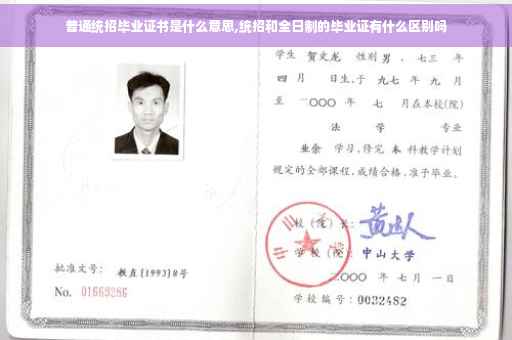 普通统招毕业证书是什么意思,统招和全日制的毕业证有什么区别吗
学生 贺文龙 性别 男 、七三 年
四 月 日生,于 九七 年 九 月
至 二〇〇〇 年 七 月在本校(院)
法 学 专业
业余 学习,修完 本 科教学计划
规定的全部课程,成绩合格,准予毕业。
校(院)长:
学校(院): 中山大学
二〇〇〇 年 七 月 一 日
学校编号: 0032482
批准文号: 教直[1993]8号
No. 01669286